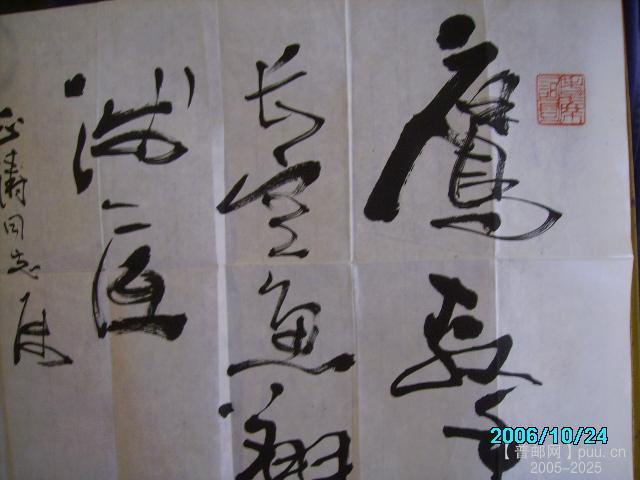 鹰擊
长空鱼翔
浅底
涛同志属
2006/10/24
【普邮网】puu.cn
2005-2025